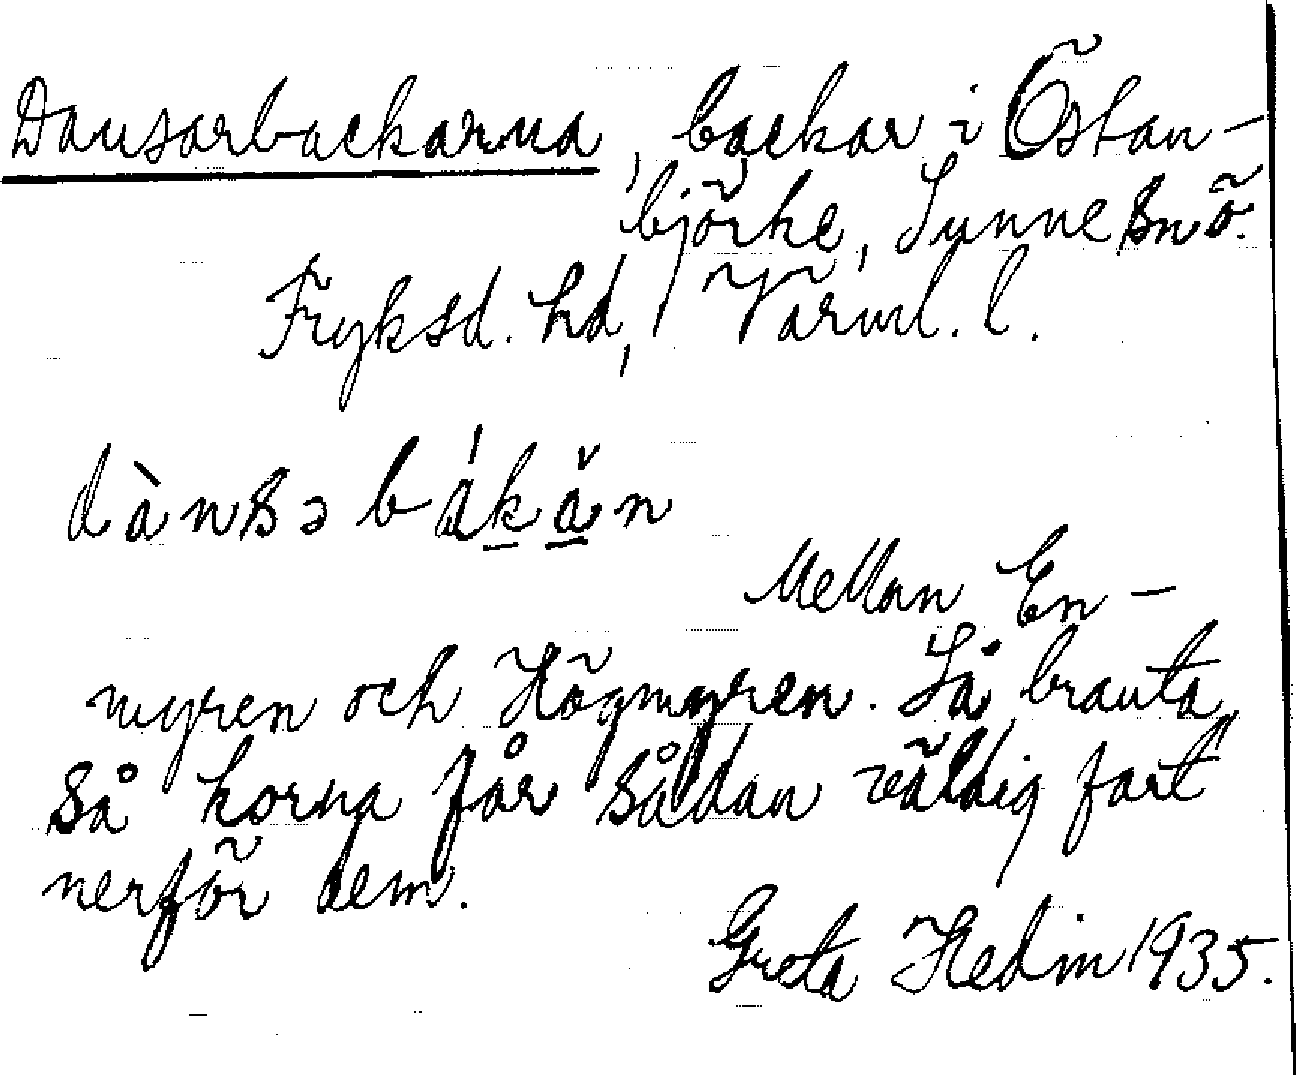 Dansarbackarna, backar i Östan-
björke, Sunne sn ö.
Fryksd. hd, Värml. l.
dànsəbákǎn
Mellan En-
myren och Högmyren. Så branta,
så korna får sådan väldig fart
nerför dem.
Greta Hedin 1935.